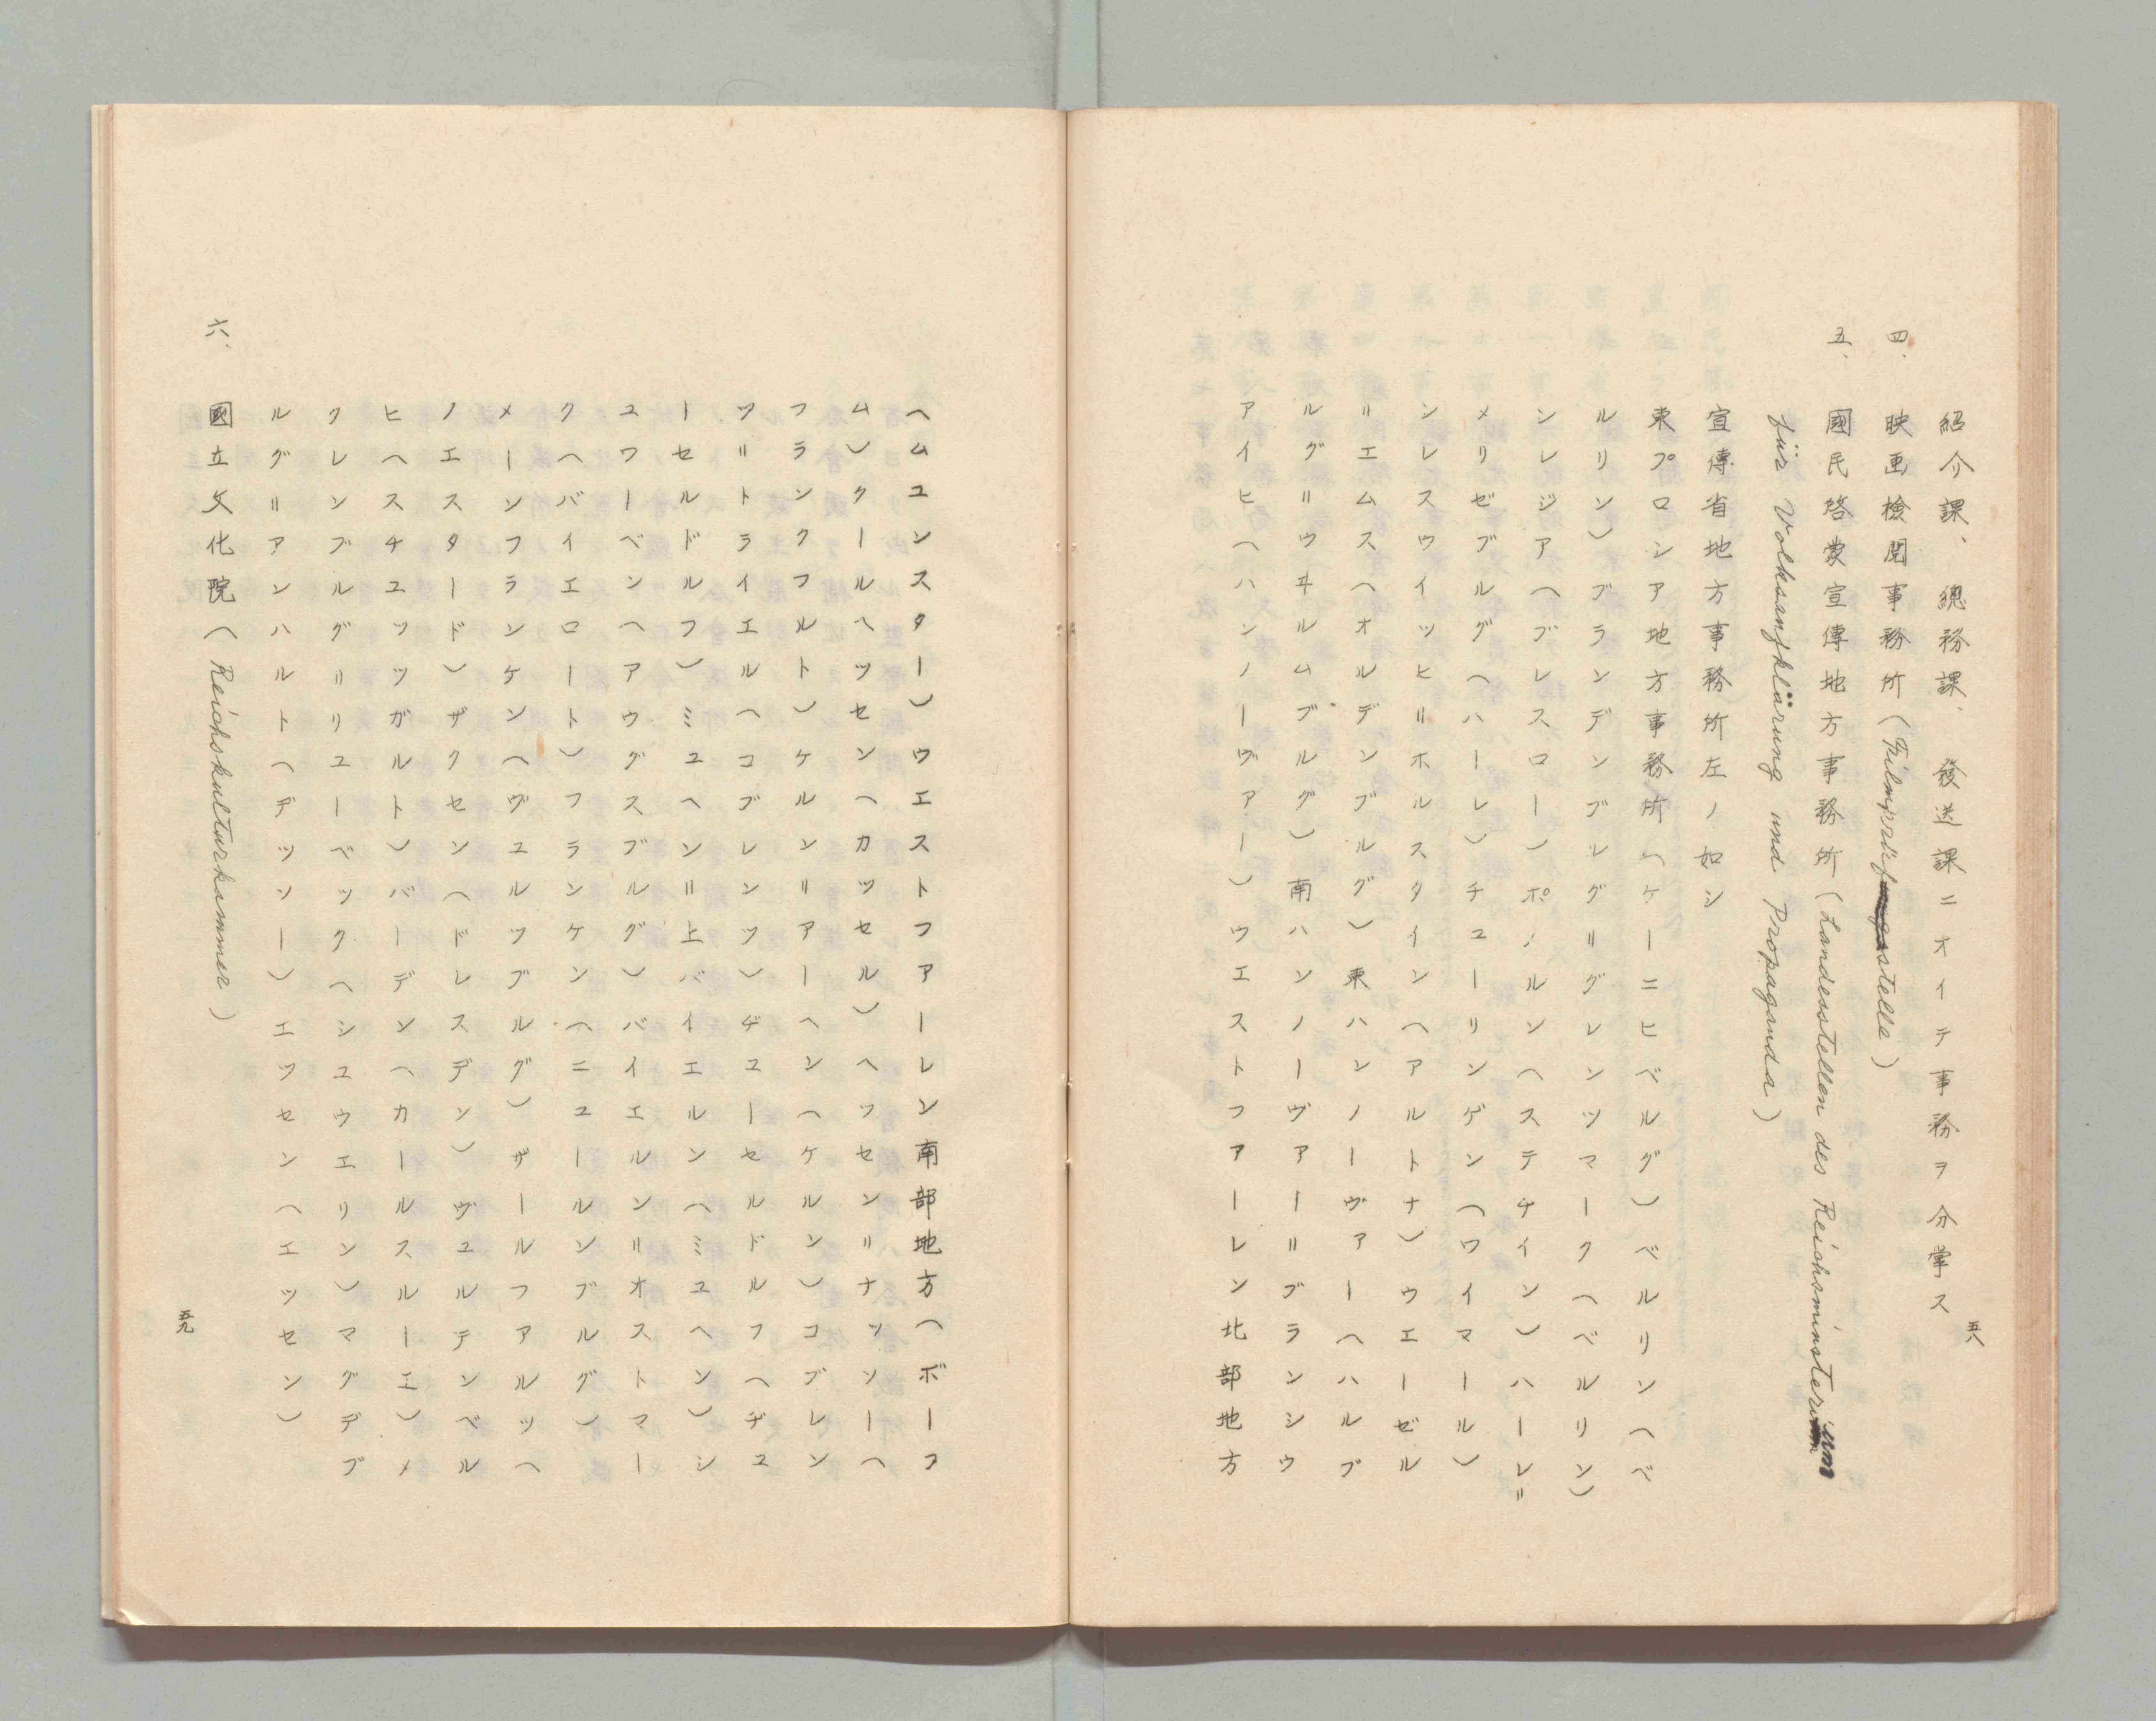 五八
紹介課、總務課、發送課ニオイテ事務ヲ分掌ス
四、映画檢閲事務所（Filmprüfstelle）
五、國民啓蒙宣傳地方事務所（Landesstellen des Reichsministerium
für Volksaufklärung und Propaganda）
宣傳省地方事務所左ノ如シ
東プロシア地方事務所（ケーニヒベルグ）ベルリン（ベ
ルリン）ブランデンブルグ＝グレンツマーク（ベルリン）
シレジア（ブレスロー）ポムメルン（ステチイン）ハーレ＝
メリゼブルグ（ハーレ）チューリンゲン（ワイマール）
シレスウイッヒ＝ホルスタイン（アルトナ）ウエーゼル
＝エムス（オルデンブルグ）東ハンノーヴァー（ハルブ
ルグ＝ウヰルムブルグ）南ハンノーヴァー＝ブランシウ
アイヒ（ハンノーヴァー）ウエストファーレン北部地方
（ムユンスター）ウエストファーレン南部地方（ボーフ
ム）クールヘッセン（カッセル）ヘッセン＝ナッソー（
フランクフルト）ケルン＝アーヘン（ケルン）コブレン
ツ＝トライエル（コブレンツ）ヂューセルドルフ（ヂュ
ーセルドルフ）ミュヘン＝上バイエルン（ミュヘン）シ
ュワーベン（アウグスブルグ）バイエルン＝オストマー
ク（バイエロート）フランケン（ニュールンブルグ）
メーンフランケン（ヴュルツブルグ）ザールファルツ（
ノエスタード）ザクセン（ドレスデン）ヴュルテンベル
ヒ（スチュッツガルト）バーデン（カールスルーエ）メ
クレンブルグ＝リューベック（シュウエリン）マグデブ
ルグ＝アンハルト（デッソー）エッセン（エッセン）
六、國立文化院（Reichskulturkammer）
五九